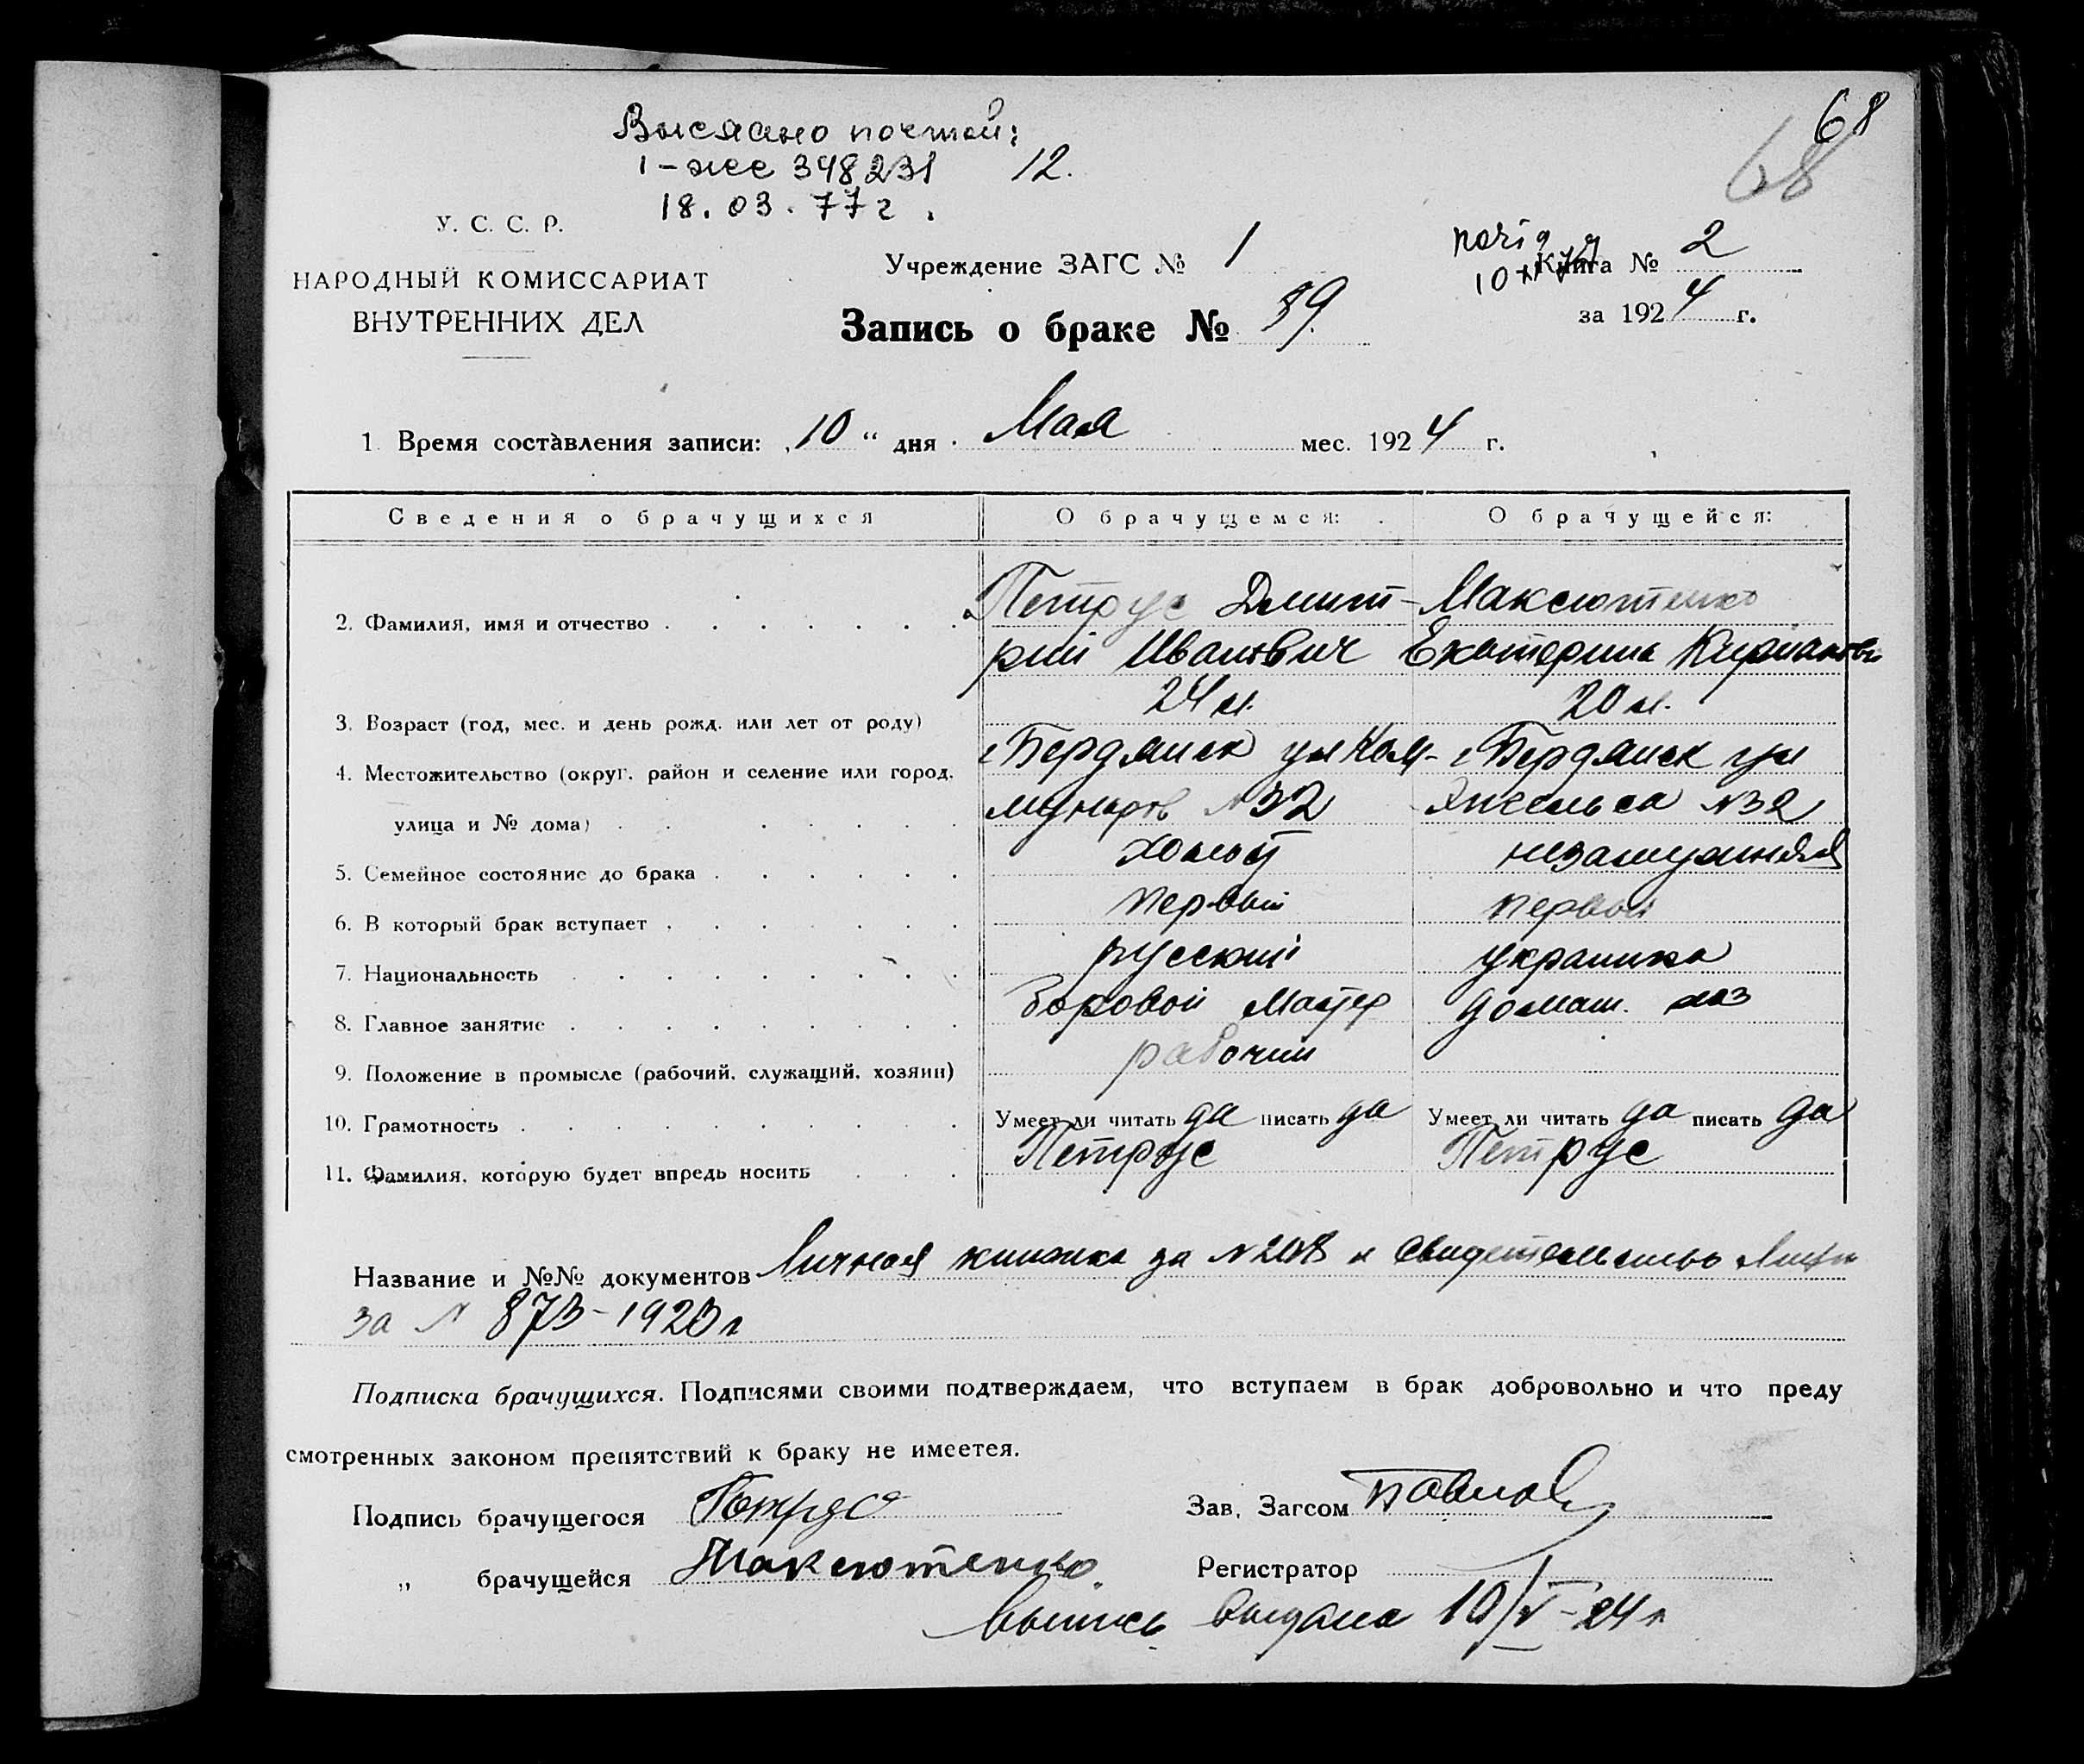 68
Выслано почтой:
1-же 348231 12.
68
18.03.77г.
У. С. С. Р.
НАРОДНЫЙ КОМИССАРИАТ
ВНУТРЕННИХ ДЕЛ
Учреждение ЗАГС № 1
Книга № 2
Запись о браке № 39.
за 1924 г.
1. Время составления записи: „10“ дня Мая мес. 1924 г.
Сведения о брачущихся О брачущемся: О брачущейся:
Петрус Дмит- Максютенко
2. Фамилия, имя и отчество
рий Иванович Екатерина Кириаков
24 л. 20 л.
3. Возраст (год, мес. и день рожд. или лет от роду)
г Бердянск ул Ком- г Бердянск ул
4. Местожительство (округ, район и селение или город,
мунаров N32 Энгельса N32
улица и № дома)
холост незамужняя
5. Семейное состояние до брака
первый первый
6. В который брак вступает
русский украинка
7. Национальность
мастер домаш. хоз
8. Главное занятие
рабочий
9. Положение в промысле (рабочий, служащий, хозяин)
Умеет ли читать да писать да Умеет ли читать да писать да
10. Грамотность
Петрус Петрус
11. Фамилия, которую будет впредь носить
Название и №№ документов Личная книжка за N208 и свидетельство
за N 873-1923г
Подписка брачущихся. Подписями своими подтверждаем, что вступаем в брак добровольно и что преду
смотренных законом препятствий к браку не имеется.
Подпись брачущегося Петрус Зав. Загсом Павлов
„ брачущейся Максютенко. Регистратор
выпись выдана 10/V-24г